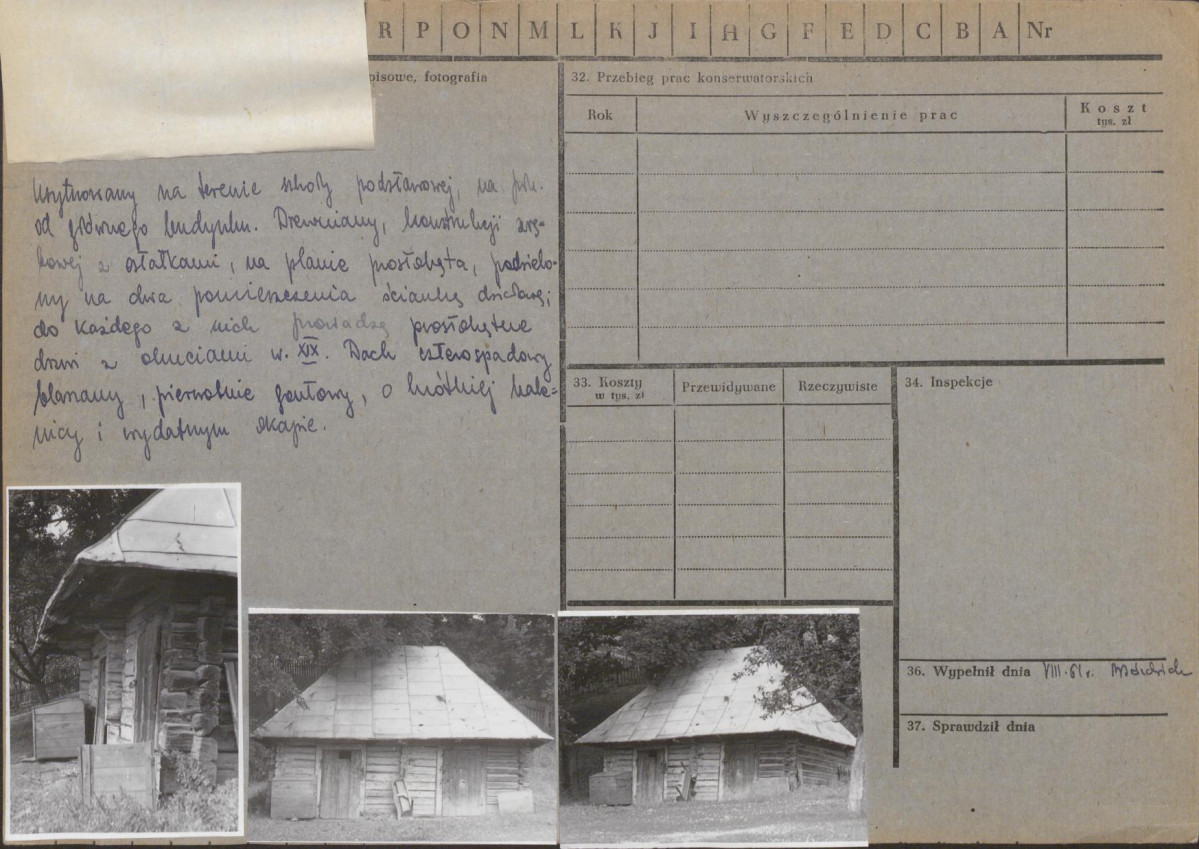 R P O N M L K J I H G F E D C B A Nr
pisowe, fotografia
Usytuowany na terenie szkoły podstawowej, na płn.
od głównego budynku. Drewniany, konstrukcji zrę-
bowej z ostatkami, na planie prostokąta, podzielo-
ny na dwa pomieszczenia ścianką działową;
do każdego z nich prowadzą prostokątne
drzwi z okuciami w. XIX. Dach czterospadowy
blaszany, pierwotnie gontowy, o krótkiej kale-
nicy i wydatnym okapie.
32. Przebieg prac konserwatorskich
Rok Wyszczególnienie prac Koszt
tys. zł
33. Koszty w tys. zł Przewidywane Rzeczywiste
34. Inspekcje
36. Wypełnił dnia VIII.61 r.
37. Sprawdził dnia